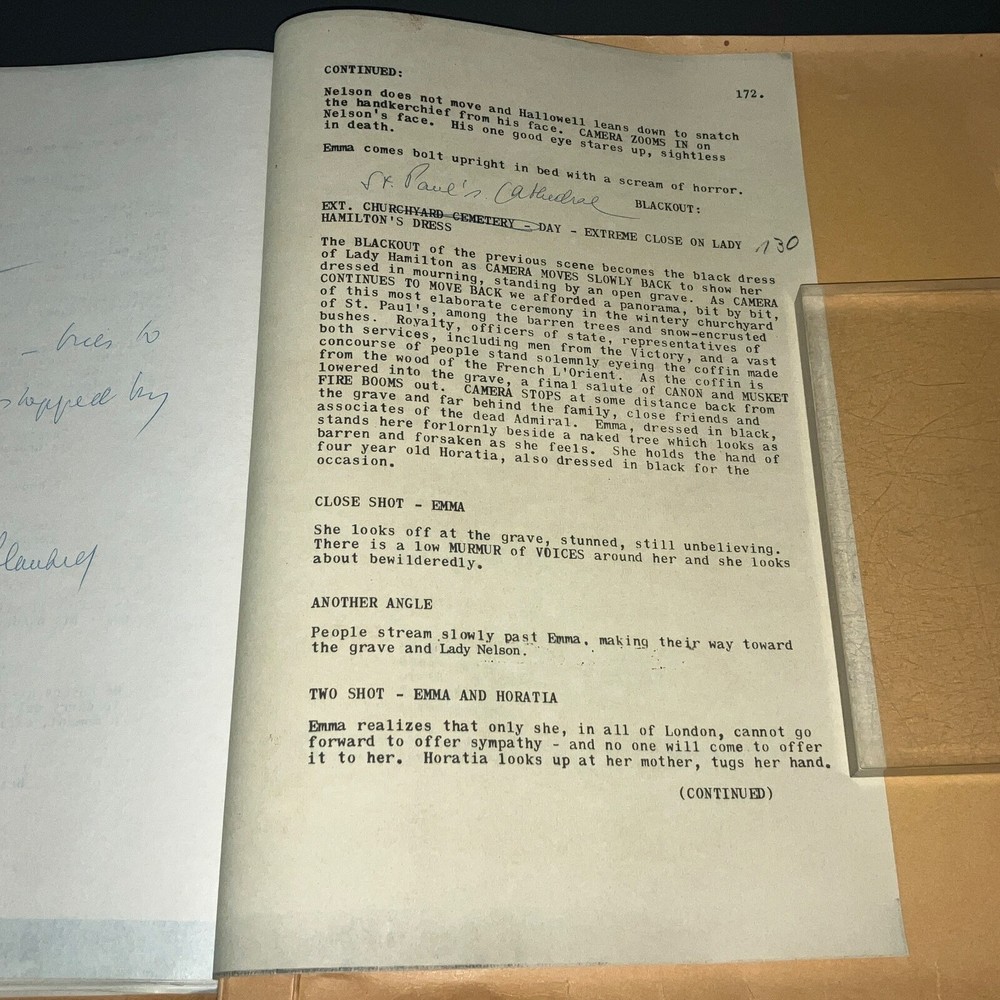 - tries to
stopped by
CONTINUED:
172.
Nelson does not move and Hallowell leans down to snatch
the handkerchief from his face. CAMERA ZOOMS IN on
Nelson's face. His one good eye stares up, sightless
in death.
Emma comes bolt upright in bed with a scream of horror.
St. Paul's Cathedral
BLACKOUT:
EXT. CHURCHYARD CEMETERY - DAY - EXTREME CLOSE ON LADY
HAMILTON'S DRESS
130
The BLACKOUT of the previous scene becomes the black dress
of Lady Hamilton as CAMERA MOVES SLOWLY BACK to show her
dressed in mourning, standing by an open grave. As CAMERA
CONTINUES TO MOVE BACK we afforded a panorama, bit by bit,
of this most elaborate ceremony in the wintery churchyard
of St. Paul's, among the barren trees and snow-encrusted
bushes. Royalty, officers of state, representatives of
both services, including men from the Victory, and a vast
concourse of people stand solemnly eyeing the coffin made
from the wood of the French L'Orient. As the coffin is
lowered into the grave, a final salute of CANON and MUSKET
FIRE BOOMS out. CAMERA STOPS at some distance back from
the grave and far behind the family, close friends and
associates of the dead Admiral. Emma, dressed in black,
stands here forlornly beside a naked tree which looks as
barren and forsaken as she feels. She holds the hand of
four year old Horatia, also dressed in black for the
occasion.
CLOSE SHOT - EMMA
She looks off at the grave, stunned, still unbelieving.
There is a low MURMUR of VOICES around her and she looks
about bewilderedly.
ANOTHER ANGLE
People stream slowly past Emma, making their way toward
the grave and Lady Nelson.
TWO SHOT - EMMA AND HORATIA
Emma realizes that only she, in all of London, cannot go
forward to offer sympathy - and no one will come to offer
it to her. Horatia looks up at her mother, tugs her hand.
(CONTINUED)